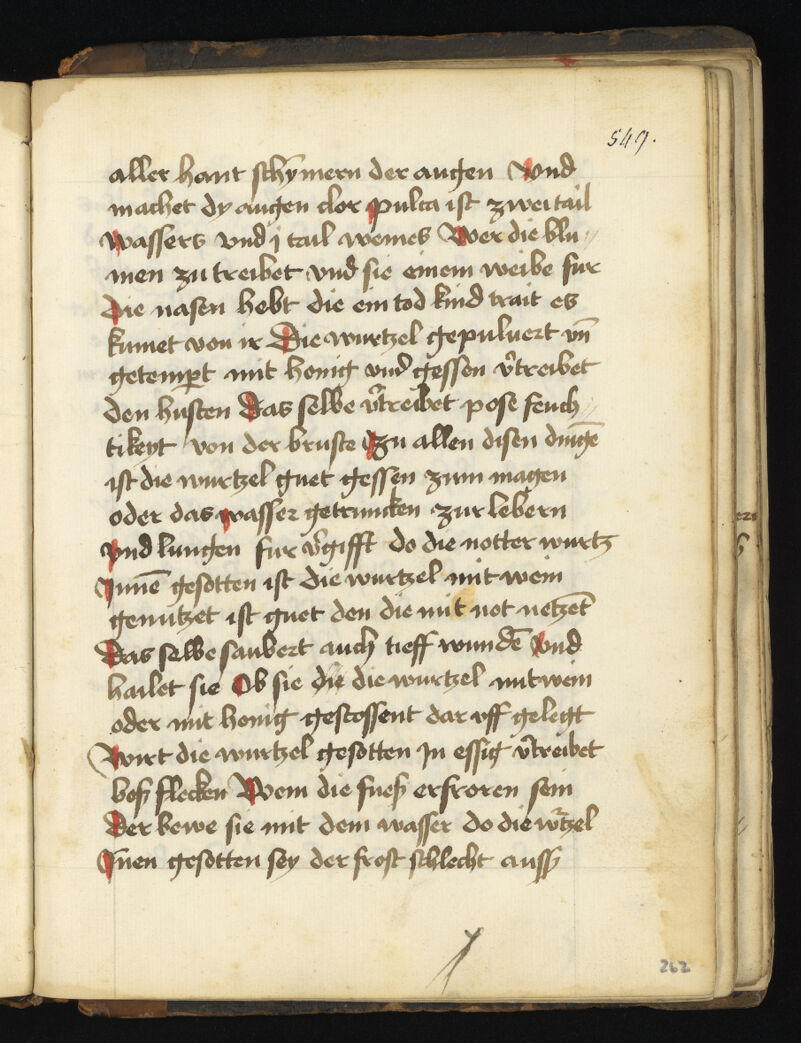 549.
aller hant schymern der augen Vnd
machet dy augen clor pulca ist zwei tail
wassers vnd j tail weines Wer die blu〃
men zu treibet vnd sie einem weibe fur
die nasen hebt die ein tod kind trait es
kumet von ir Die wurtzel gepuluert vn̄
getemp̲t mit honig vnd gessen v̄treibet
den husten Das selbe v̄treibet pose feuch〃
tikeyt von der bruste Zu allen disen dingē
ist die wurtzel guet gessen zum magen
oder das wasser getruncken zur lebern
vnd lungen fur v̄gifft do die notter wurtz
Innē gesotten ist die wurtzel mit wein
genutzet ist guet den die mit not netzēt
Das selbe saubert auch tieff wundē Vnd
hailet sie Ob sie die wurtzel mit wein
oder mit honig gestossent dar vff gelegt
Wirt die wurtzel gesotten Jn essig v̄treibet
boß flecken Wem die fueß erfroren sein
Der bewe sie mit dem wasser do die wr̄tzel
Jn̄en gesotten sey der frost schlecht auss
262